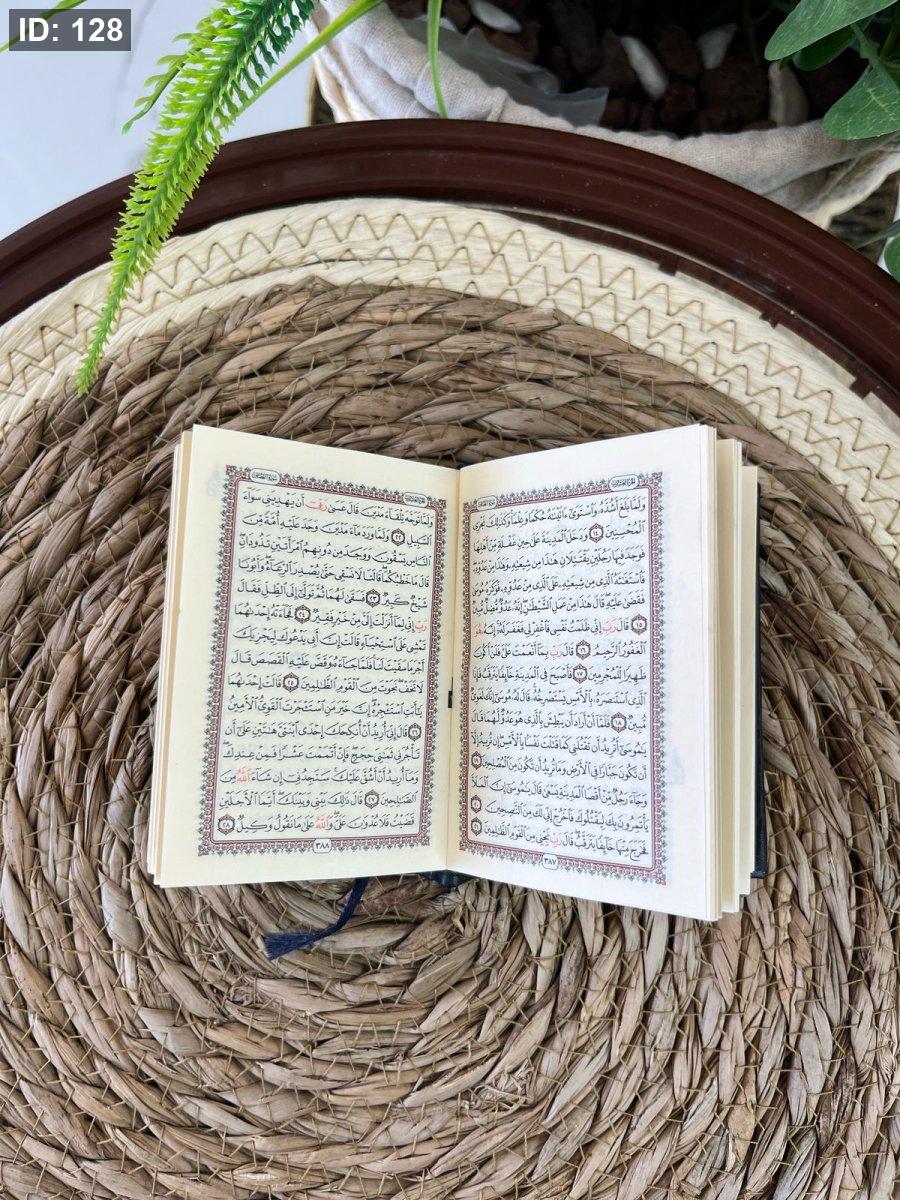 ID: 128
الجزء العشرون
سورة القصص
وَلَمَّا بَلَغَ أَشُدَّهُۥ وَٱسْتَوَىٰٓ ءَاتَيْنَٰهُ حُكْمًا وَعِلْمًا وَكَذَٰلِكَ نَجْزِى
ٱلْمُحْسِنِينَ ١٤ وَدَخَلَ ٱلْمَدِينَةَ عَلَىٰ حِينِ غَفْلَةٍ مِّنْ أَهْلِهَا
فَوَجَدَ فِيهَا رَجُلَيْنِ يَقْتَتِلَانِ هَٰذَا مِن شِيعَتِهِۦ وَهَٰذَا مِنْ عَدُوِّهِۦ
فَٱسْتَغَٰثَهُ ٱلَّذِى مِن شِيعَتِهِۦ عَلَى ٱلَّذِى مِنْ عَدُوِّهِۦ فَوَكَزَهُۥ مُوسَىٰ
فَقَضَىٰ عَلَيْهِ قَالَ هَٰذَا مِنْ عَمَلِ ٱلشَّيْطَٰنِ إِنَّهُۥ عَدُوٌّ مُّضِلٌّ مُّبِينٌ
١٥ قَالَ رَبِّ إِنِّى ظَلَمْتُ نَفْسِى فَٱغْفِرْ لِى فَغَفَرَ لَهُۥٓ إِنَّهُۥ هُوَ
ٱلْغَفُورُ ٱلرَّحِيمُ ١٦ قَالَ رَبِّ بِمَآ أَنْعَمْتَ عَلَىَّ فَلَنْ أَكُونَ
ظَهِيرًا لِّلْمُجْرِمِينَ ١٧ فَأَصْبَحَ فِى ٱلْمَدِينَةِ خَآئِفًا يَتَرَقَّبُ فَإِذَا
ٱلَّذِى ٱسْتَنصَرَهُۥ بِٱلْأَمْسِ يَسْتَصْرِخُهُۥ قَالَ لَهُۥ مُوسَىٰٓ إِنَّكَ لَغَوِىٌّ
مُّبِينٌ ١٨ فَلَمَّآ أَنْ أَرَادَ أَن يَبْطِشَ بِٱلَّذِى هُوَ عَدُوٌّ لَّهُمَا قَالَ
يَٰمُوسَىٰٓ أَتُرِيدُ أَن تَقْتُلَنِى كَمَا قَتَلْتَ نَفْسًۢا بِٱلْأَمْسِ إِن تُرِيدُ إِلَّآ
أَن تَكُونَ جَبَّارًا فِى ٱلْأَرْضِ وَمَا تُرِيدُ أَن تَكُونَ مِنَ ٱلْمُصْلِحِينَ ١٩
وَجَآءَ رَجُلٌ مِّنْ أَقْصَا ٱلْمَدِينَةِ يَسْعَىٰ قَالَ يَٰمُوسَىٰٓ إِنَّ ٱلْمَلَأَ
يَأْتَمِرُونَ بِكَ لِيَقْتُلُوكَ فَٱخْرُجْ إِنِّى لَكَ مِنَ ٱلنَّٰصِحِينَ ٢٠
فَخَرَجَ مِنْهَا خَآئِفًا يَتَرَقَّبُ قَالَ رَبِّ نَجِّنِى مِنَ ٱلْقَوْمِ ٱلظَّٰلِمِينَ ٢١
٣٨٧
الجزء العشرون
سورة القصص
وَلَمَّا تَوَجَّهَ تِلْقَآءَ مَدْيَنَ قَالَ عَسَىٰ رَبِّىٓ أَن يَهْدِيَنِى سَوَآءَ
ٱلسَّبِيلِ ٢٢ وَلَمَّا وَرَدَ مَآءَ مَدْيَنَ وَجَدَ عَلَيْهِ أُمَّةً مِّنَ
ٱلنَّاسِ يَسْقُونَ وَوَجَدَ مِن دُونِهِمُ ٱمْرَأَتَيْنِ تَذُودَانِ
قَالَ مَا خَطْبُكُمَا قَالَتَا لَا نَسْقِى حَتَّىٰ يُصْدِرَ ٱلرِّعَآءُ وَأَبُونَا
شَيْخٌ كَبِيرٌ ٢٣ فَسَقَىٰ لَهُمَا ثُمَّ تَوَلَّىٰٓ إِلَى ٱلظِّلِّ فَقَالَ
رَبِّ إِنِّى لِمَآ أَنزَلْتَ إِلَىَّ مِنْ خَيْرٍ فَقِيرٌ ٢٤ فَجَآءَتْهُ إِحْدَىٰهُمَا
تَمْشِى عَلَى ٱسْتِحْيَآءٍ قَالَتْ إِنَّ أَبِى يَدْعُوكَ لِيَجْزِيَكَ
أَجْرَ مَا سَقَيْتَ لَنَا فَلَمَّا جَآءَهُۥ وَقَصَّ عَلَيْهِ ٱلْقَصَصَ قَالَ
لَا تَخَفْ نَجَوْتَ مِنَ ٱلْقَوْمِ ٱلظَّٰلِمِينَ ٢٥ قَالَتْ إِحْدَىٰهُمَا
يَٰٓأَبَتِ ٱسْتَـْٔجِرْهُ إِنَّ خَيْرَ مَنِ ٱسْتَـْٔجَرْتَ ٱلْقَوِىُّ ٱلْأَمِينُ
٢٦ قَالَ إِنِّىٓ أُرِيدُ أَنْ أُنكِحَكَ إِحْدَى ٱبْنَتَىَّ هَٰتَيْنِ عَلَىٰٓ أَن
تَأْجُرَنِى ثَمَٰنِىَ حِجَجٍ فَإِنْ أَتْمَمْتَ عَشْرًا فَمِنْ عِندِكَ
وَمَآ أُرِيدُ أَنْ أَشُقَّ عَلَيْكَ سَتَجِدُنِىٓ إِن شَآءَ ٱللَّهُ مِنَ
ٱلصَّٰلِحِينَ ٢٧ قَالَ ذَٰلِكَ بَيْنِى وَبَيْنَكَ أَيَّمَا ٱلْأَجَلَيْنِ
قَضَيْتُ فَلَا عُدْوَٰنَ عَلَىَّ وَٱللَّهُ عَلَىٰ مَا نَقُولُ وَكِيلٌ ٢٨
٣٨٨